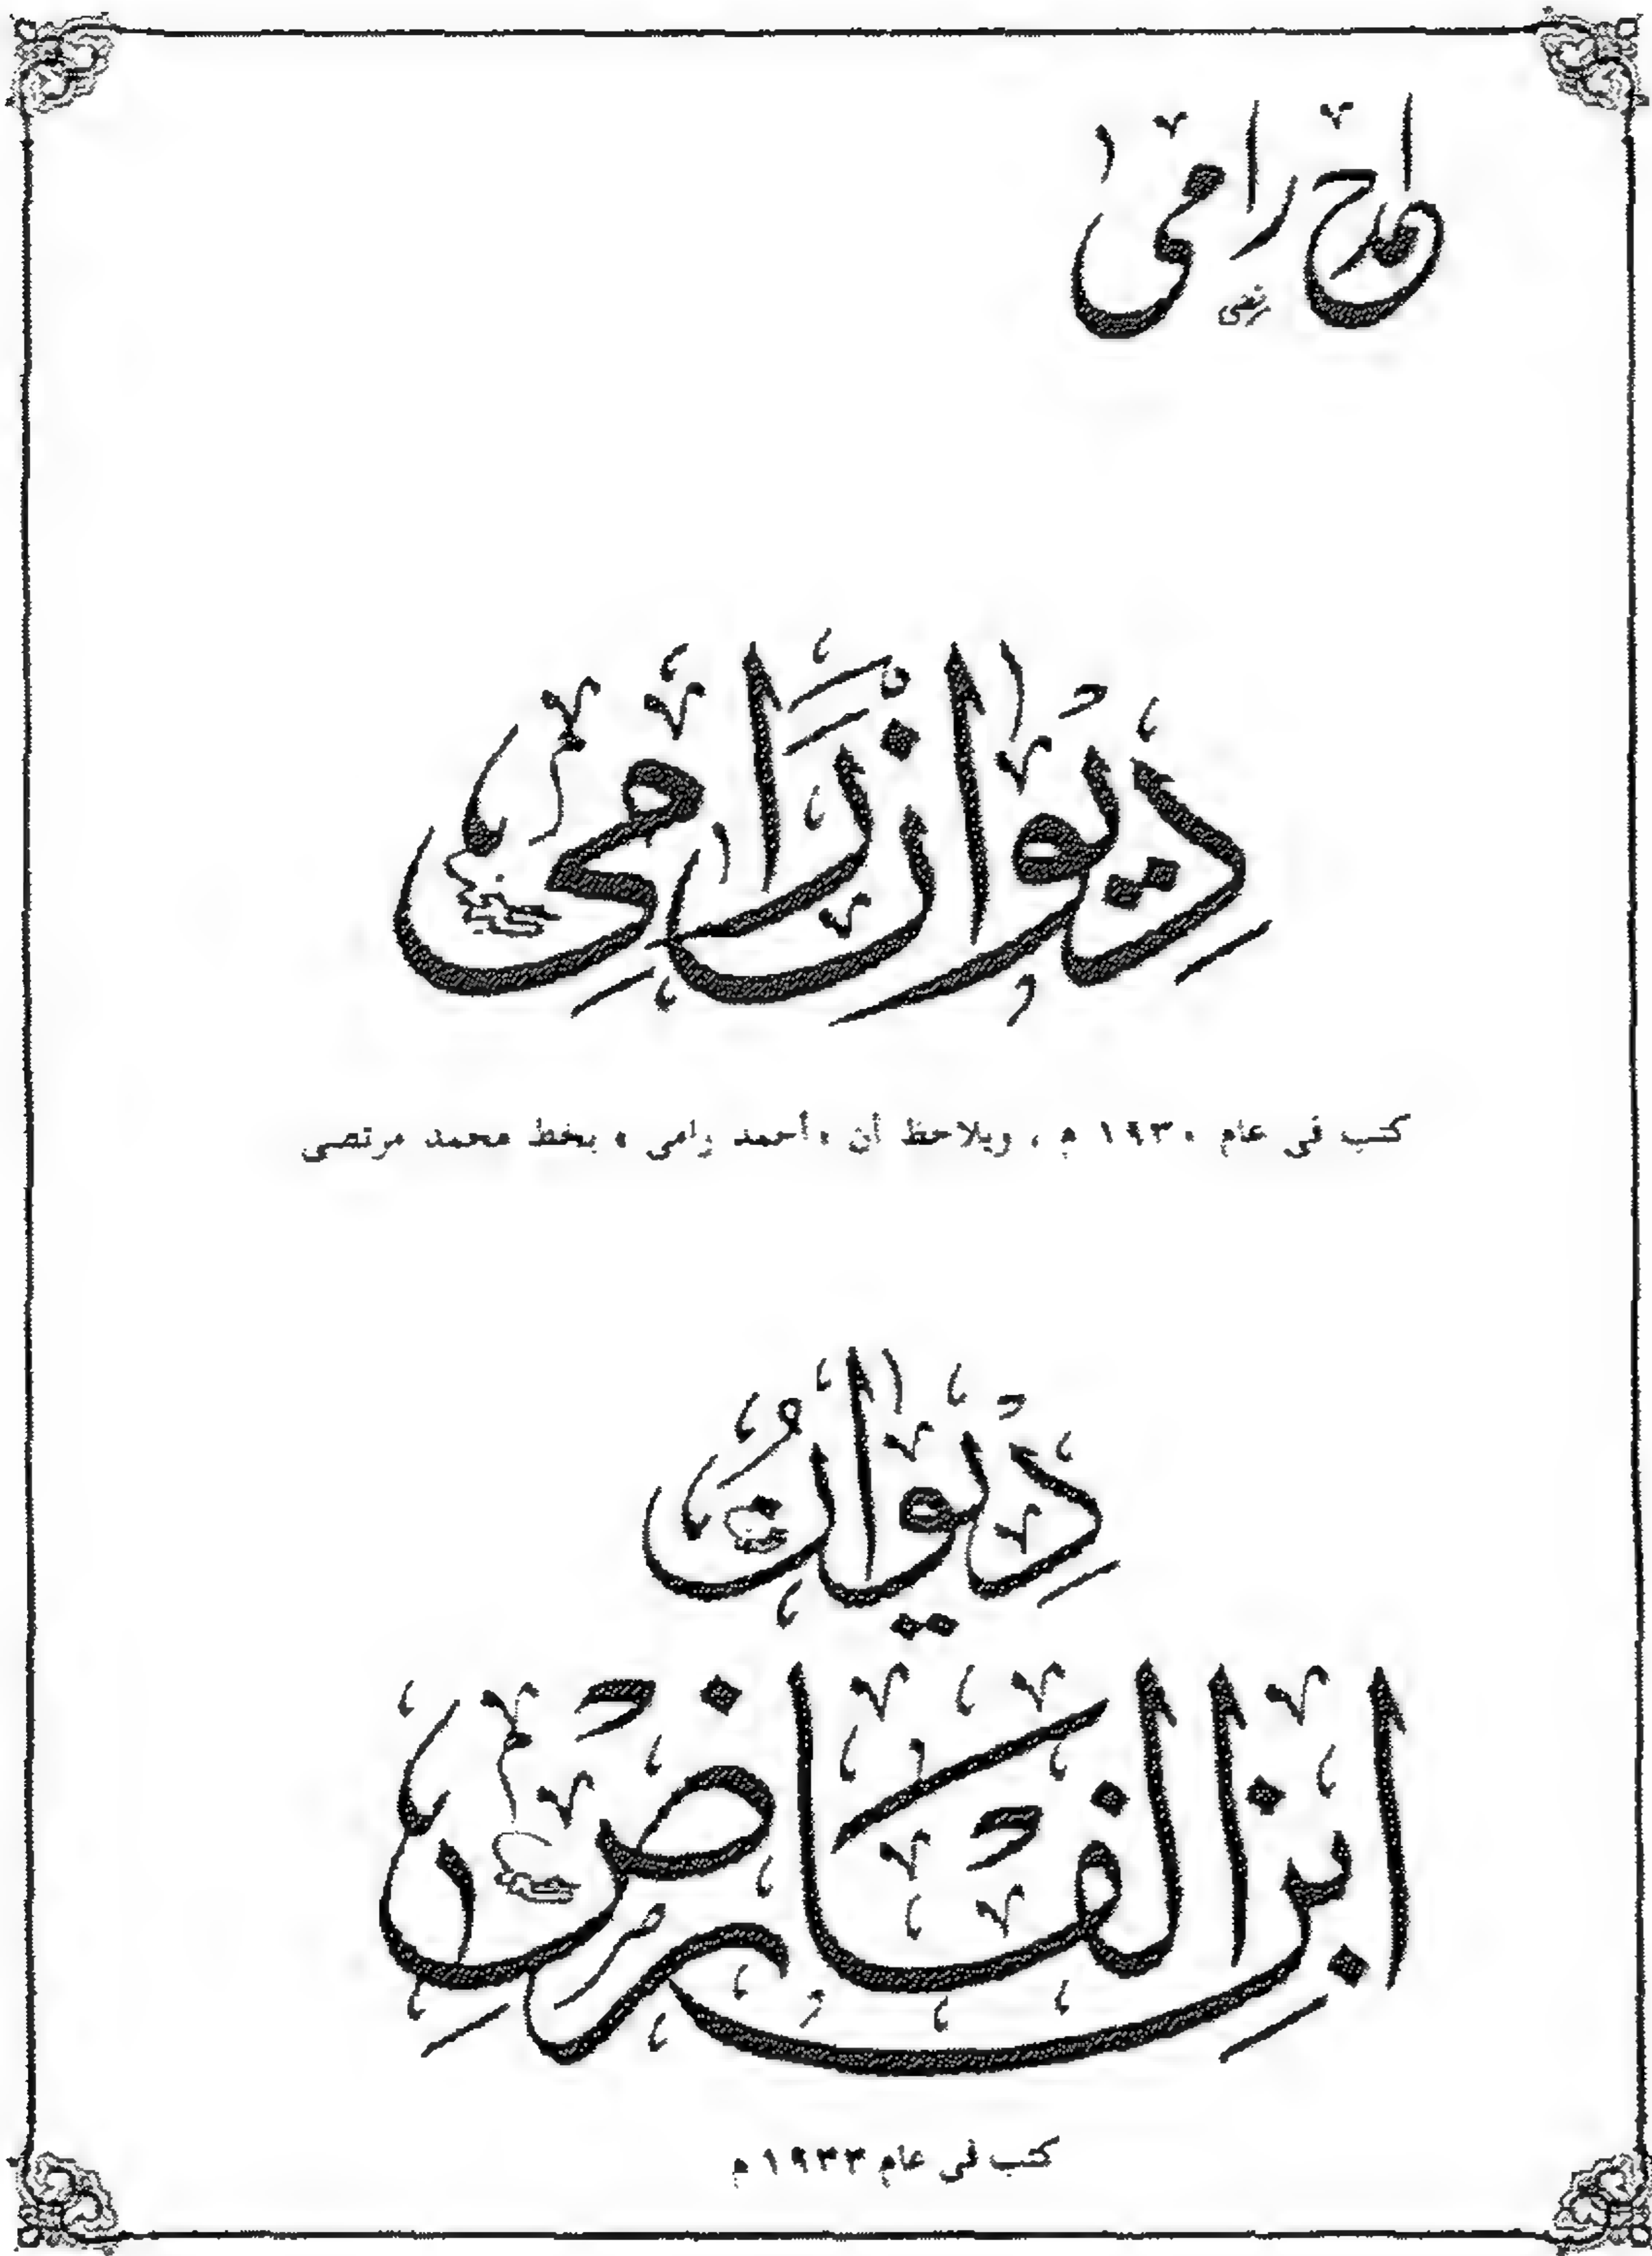 احمد رامى
مرتضى
ديوان رامى
كتب فى عام ١٩٣٠ م ، ويلاحظ أن «أحمد رامى» بخط محمد مرتضى
ديوان
ابن الفارض
كتب فى عام ١٩٣٣ م